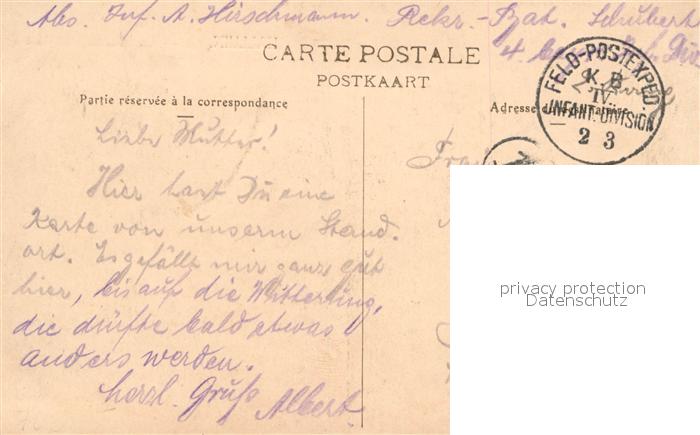 Abs. Inf. A. Hirschmann. Rekr.-Bat. Schubert
4.
CARTE POSTALE
POSTKAART
Partie réservée à la correspondance
Adresse
FELD-POSTEXPED.
K. B.
IV.
INFANT.-DIVISION
2 3
Liebe Mutter!
Hier hast Du eine
Karte von unserm Stand-
ort. Es gefällt mir ganz gut
hier, bis auf die Witterung,
die dürfte bald etwas
anders werden.
herzl. Gruß Albert.
privacy protection
Datenschutz